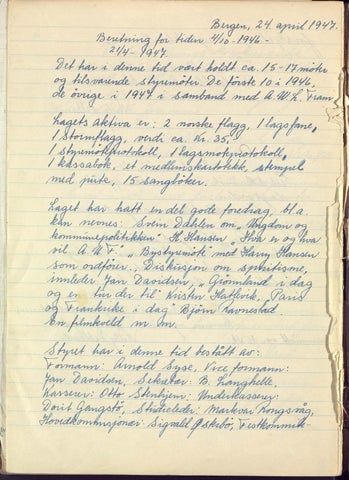 Bergen, 24. april 1947.
Beretning for tiden 4/10-1946 -
24/4-1947.
Det har i denne tid vært holdt ca. 15-17 møter
og tilsvarende styremøter. De første 10 i 1946
de øvrige i 1947 i samband med A.U.L. Fram
Lagets aktiva er: 2 norske flagg, 1 lagsfane,
1 stormflagg, verdi ca. kr. 35,
1 styremøteprotokoll, 1 lagsmøteprotokoll,
1 kassabok, et medlemskartotekk, stempel
med pute, 15 sangbøker.
Laget har hatt en del gode foredrag, bl.a.
kan nevnes: Svein Dahlen om, "Ungdom og
kommunepolitikken" H. Hansen "Hva er og hva
vil A.U.F." "Bystyremøte med Harry Hansen
som ordfører", Diskusjon om spiritisme,
innleder Jan Davidsen, "Grønland i dag
og en tur der til" Kristen Hatlevik, "Paris
og Frankrike i dag" Bjørn Ravnestad
En filmkveld m.m.
Styret har i denne tid bestått av:
Formann: Arnold Syse, Vice formann:
Jan Davidsen, Sekretær: B. Langhelle.
Kasserer: Otto Stenhjem: Underkasserer:
Dorit Gangstø, Studieleder: Markvar Kongsvåg,
Hovedkommisjonær: Sigvald Øskebø, Festkommite-